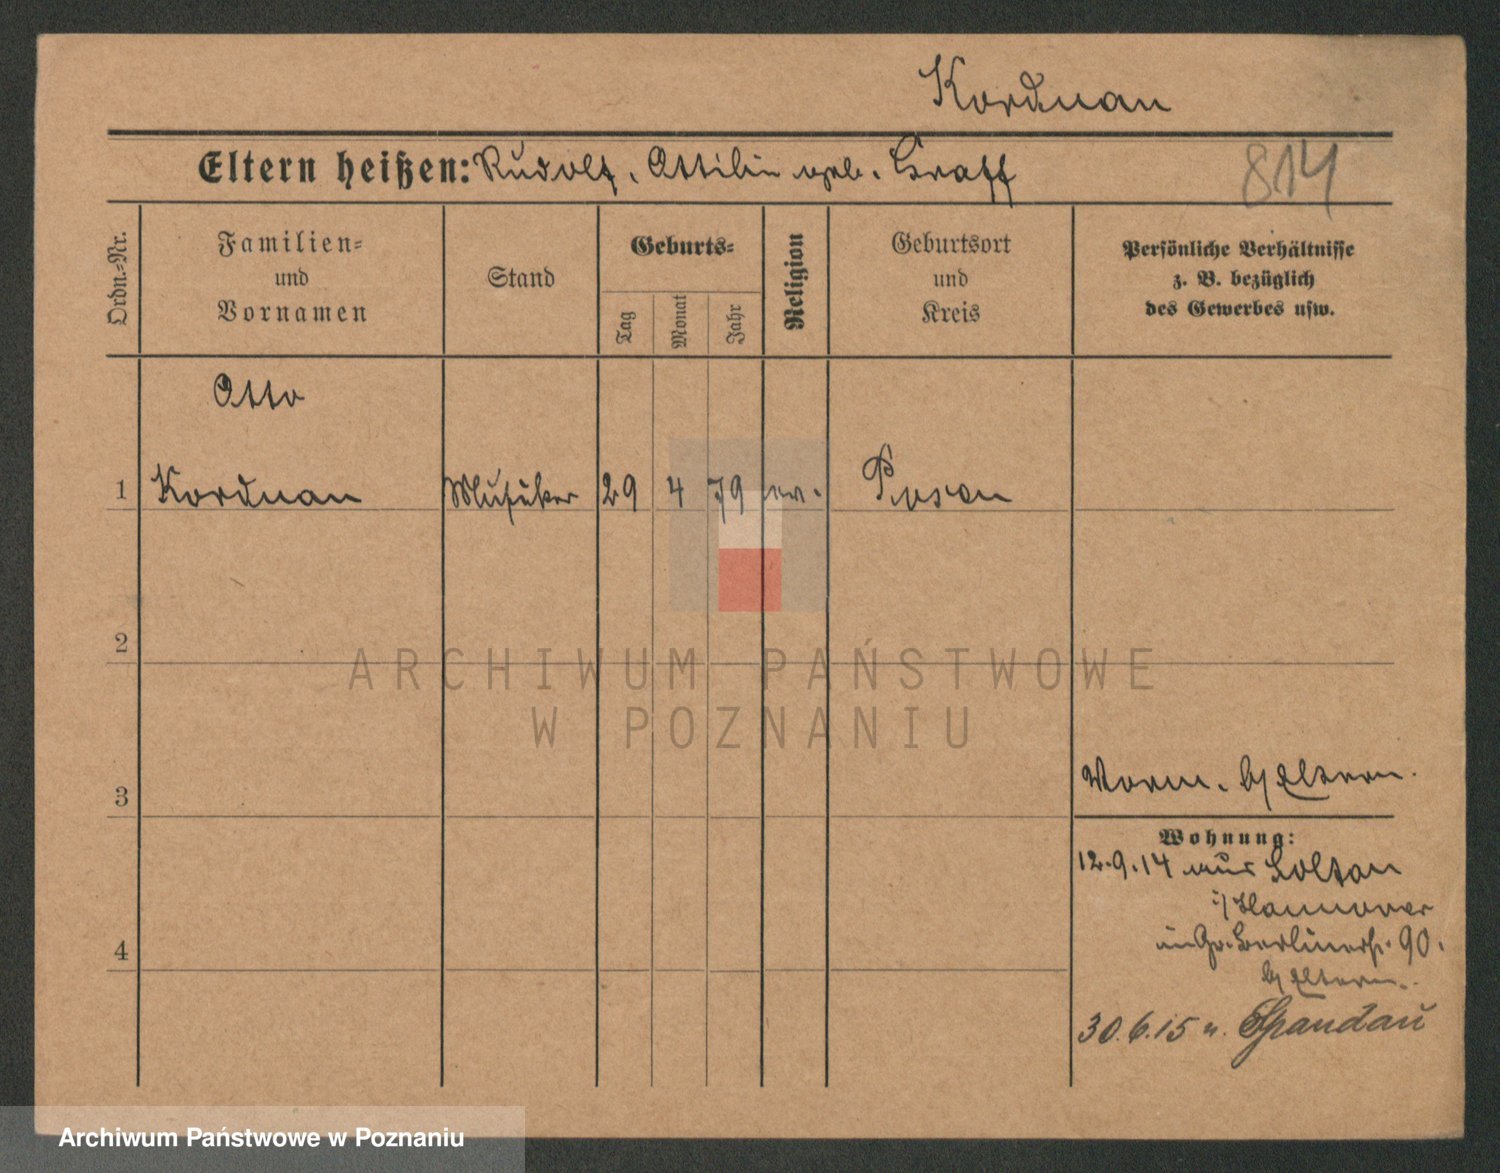 Korduan
Eltern heißen: Rudolf, Ottilie geb. Graff
814
Ordn.-Nr.
Familien-
und
Vornamen
Stand
Geburts-
Tag
Monat
Jahr
Religion
Geburtsort
und
Kreis
Persönliche Verhältnisse
z. B. bezüglich
des Gewerbes usw.
Otto
1 Korduan Musiker 29 4 79 ev. Posen
2
ARCHIWUM PAŃSTWOWE
W POZNANIU
3
Vorm. b/ Eltern.
Wohnung:
12.9.14 aus Soltau
i/ Hannover
in Gr. Berlinerstr. 90.
b/ Eltern.
4
30.6.15 n. Spandau
Archiwum Państwowe w Poznaniu